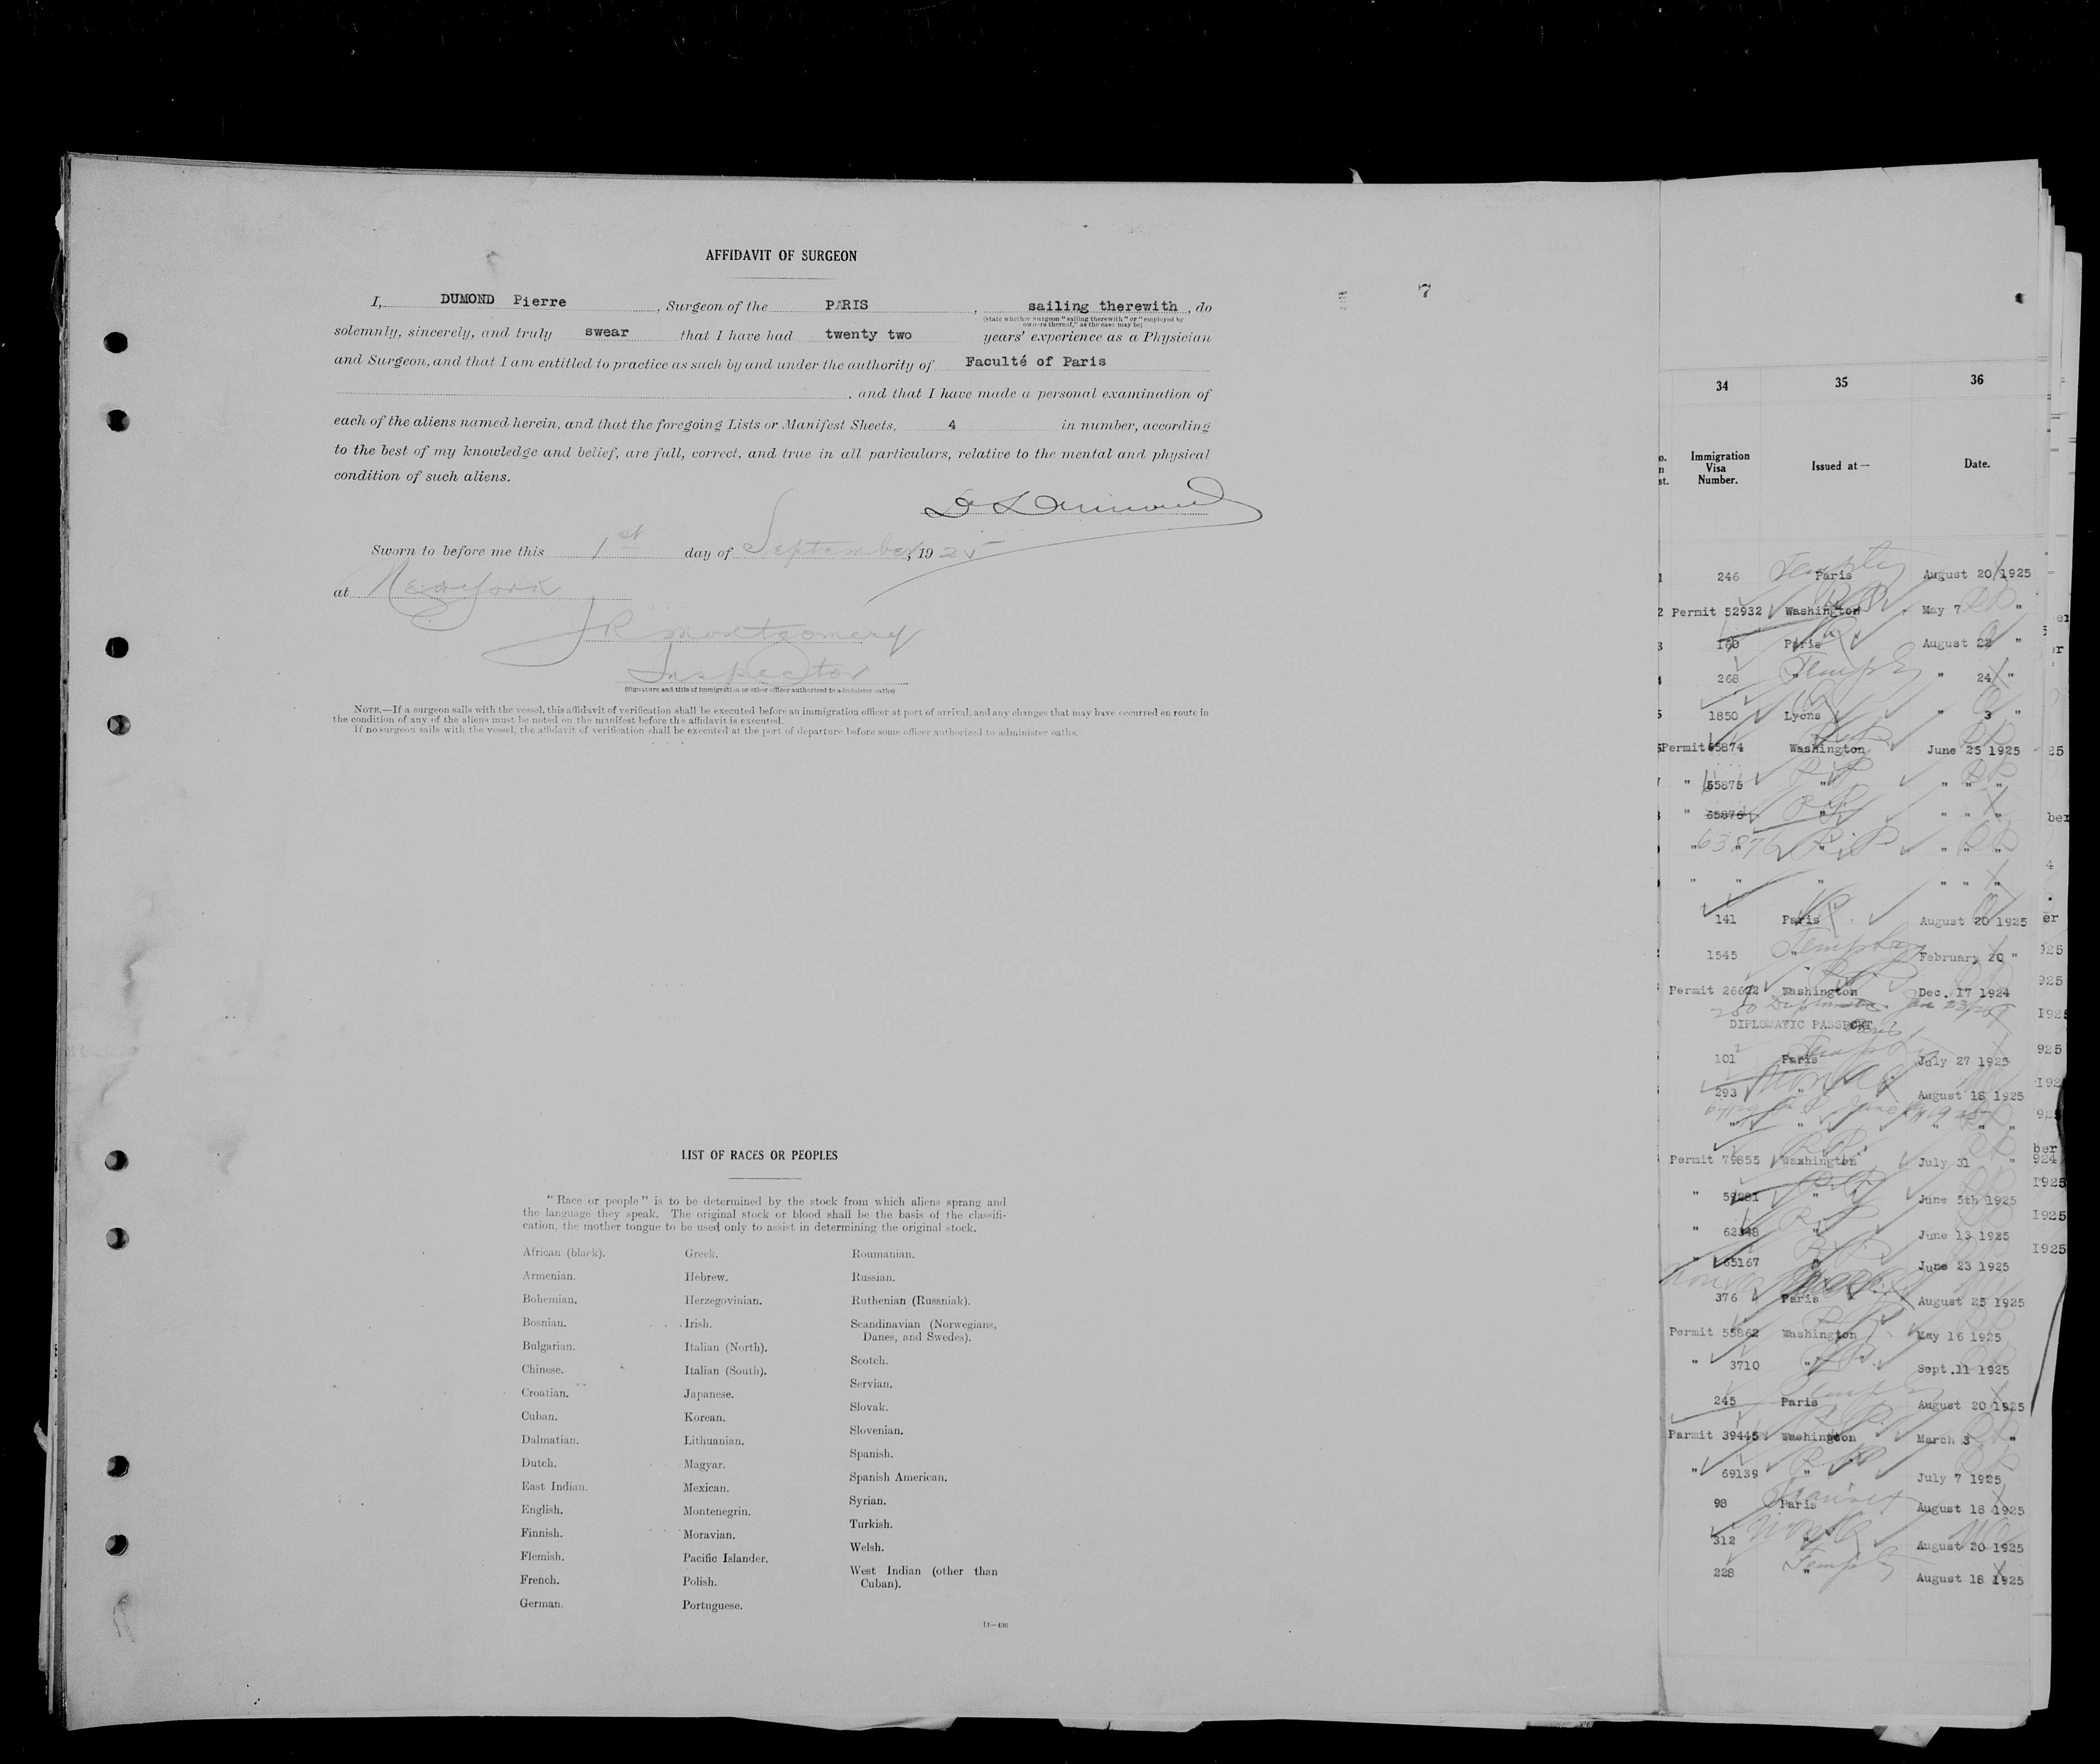 AFFIDAVIT OF SURGEON
I, DUMOND Pierre, Surgeon of the PARIS, sailing therewith, do
(State whether Surgeon "sailing therewith" or "employed by
owners thereof," as the case may be)
solemnly, sincerely, and truly swear that I have had twenty two years' experience as a Physician
and Surgeon, and that I am entitled to practice as such by and under the authority of Faculté of Paris
, and that I have made a personal examination of
each of the aliens named herein, and that the foregoing Lists or Manifest Sheets, 4 in number, according
to the best of my knowledge and belief, are full, correct, and true in all particulars, relative to the mental and physical
condition of such aliens.
Sworn to before me this 1st day of September, 1925
at New York
JR Montgomery
Inspector
(Signature and title of immigration or other officer authorized to administer oaths)
NOTE.—If a surgeon sails with the vessel, this affidavit of verification shall be executed before an immigration officer at port of arrival, and any changes that may have occurred en route in
the condition of any of the aliens must be noted on the manifest before the affidavit is executed.
If no surgeon sails with the vessel, the affidavit of verification shall be executed at the port of departure before some officer authorized to administer oaths.
7
LIST OF RACES OR PEOPLES
"Race or people" is to be determined by the stock from which aliens sprang and
the language they speak. The original stock or blood shall be the basis of the classifi-
cation, the mother tongue to be used only to assist in determining the original stock.
African (black).
Armenian.
Bohemian.
Bosnian.
Bulgarian.
Chinese.
Croatian.
Cuban.
Dalmatian.
Dutch.
East Indian.
English.
Finnish.
Flemish.
French.
German.
Greek.
Hebrew.
Herzegovinian.
Irish.
Italian (North).
Italian (South).
Japanese.
Korean.
Lithuanian.
Magyar.
Mexican.
Montenegrin.
Moravian.
Pacific Islander.
Polish.
Portuguese.
Roumanian.
Russian.
Ruthenian (Russniak).
Scandinavian (Norwegians,
Danes, and Swedes).
Scotch.
Servian.
Slovak.
Slovenian.
Spanish.
Spanish American.
Syrian.
Turkish.
Welsh.
West Indian (other than
Cuban).
14—430
34 35 36
Immigration
Visa
Number.
Issued at —
Date.
246 Paris August 20 1925
2 Permit 52932 Washington May 7 "
3 160 Paris August 22 "
268 " " 24 "
1850 Lyons " 3 "
Permit 65874 Washington June 25 1925
" 65875 " " " "
" 65876 " " " "
" " " " " "
" " " " " "
141 Paris August 20 1925
1545 " February 20 "
Permit 26622 Washington Dec. 17 1924
DIPLOMATIC PASSPORT
101 Paris July 27 1925
293 " August 18 1925
" " " " "
Permit 79855 Washington July 31 "
" 59281 " June 5th 1925
" 62348 " June 13 1925
" 65167 " June 23 1925
376 Paris August 25 1925
Permit 55862 Washington May 16 1925
" 3710 " Sept. 11 1925
245 Paris August 20 1925
Parmit 39445 Washington March 3 "
" 69139 " July 7 1925
98 Paris August 18 1925
312 " August 20 1925
228 " August 18 1925